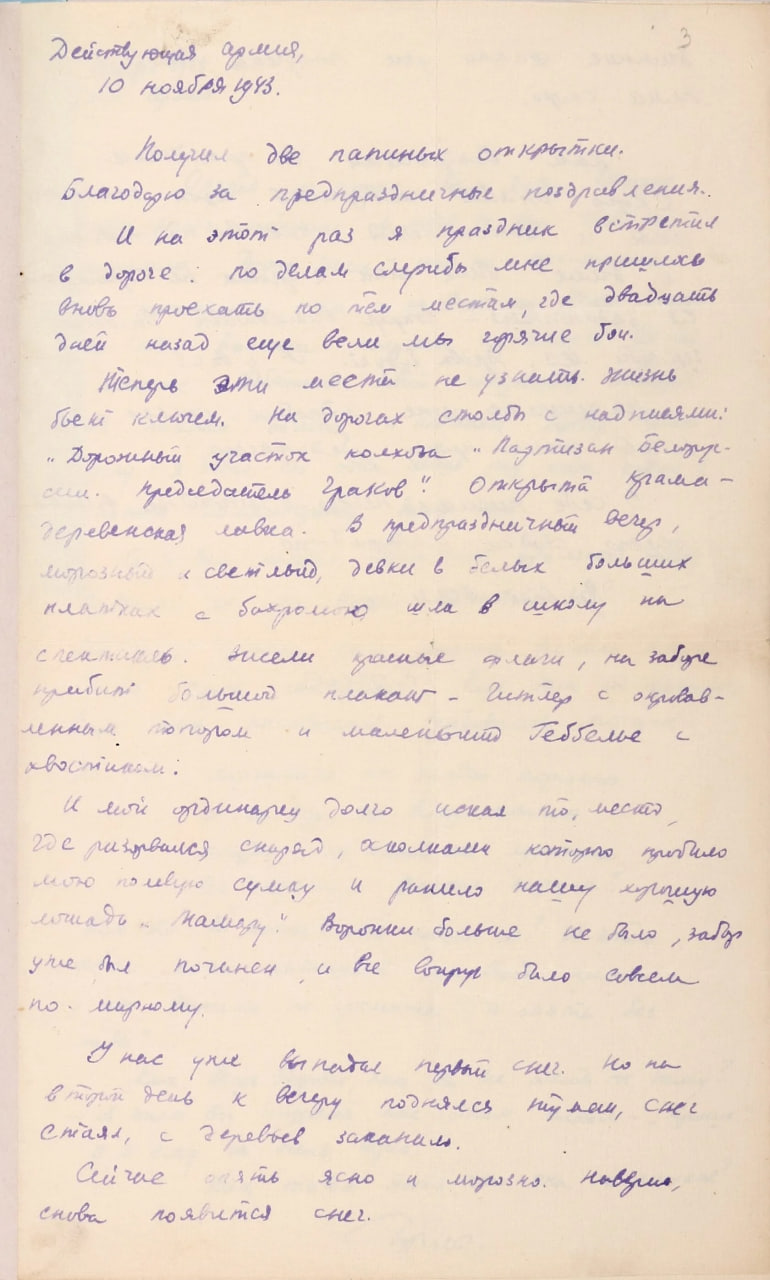 3
Действующая армия,
10 ноября 1943.
Получил две папиных открытки.
Благодарю за предпраздничные поздравления.
И на этот раз я праздник встретил
в дороге: по делам службы мне пришлось
вновь проехать по тем местам, где двадцать
дней назад еще вели мы горячие бои.
Теперь эти места не узнать. Жизнь
бьет ключем. На дорогах столбы с надписями:
„Дорожный участок колхоза „Партизан Белорус-
сии. Председатель Граков". Открыта крама –
деревенская лавка. В предпраздничный вечер,
морозный и светлый, девки в белых больших
платках с бахромою шли в школу на
спектакль. Висели красные флаги, на заборе
прибит большой плакат – Гитлер с окровав-
ленным топором и маленький Геббельс с
хвостиком.
И мой ординарец долго искал то место,
где разорвался снаряд, осколками которого пробило
мою полевую сумку и ранило нашу хорошую
лошадь „Тамару". Воронки больше не было, забор
уже был починен и все вокруг было совсем
по-мирному.
У нас уже выпадал первый снег. Но на
второй день к вечеру поднялся туман, снег
стаял, с деревьев закапало.
Сейчас опять ясно и морозно. Наверно,
снова появится снег.